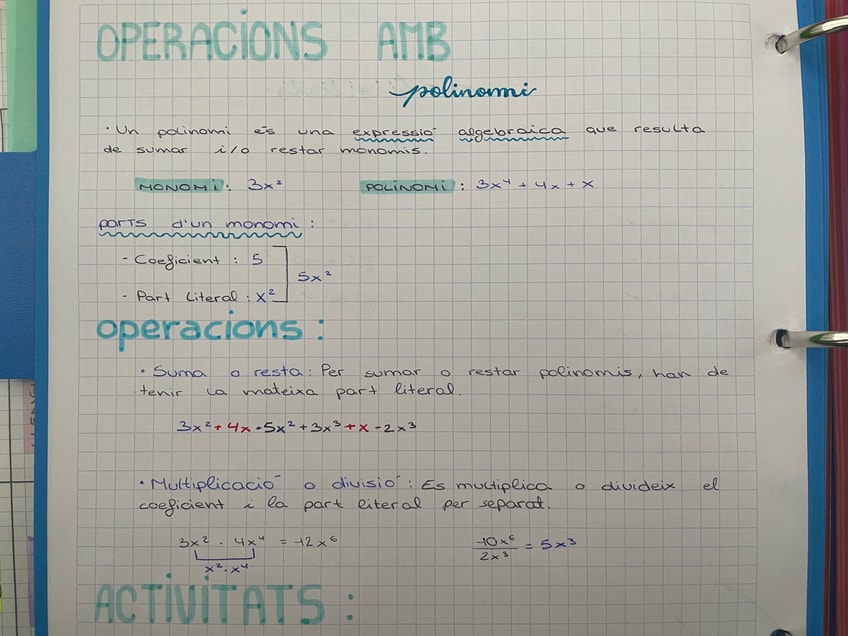 OPERACIONS AMB
polinomi
· Un polinomi és una expressió algebraica que resulta
de sumar i/o restar monomis.
MONOMI: 3x² POLINOMI: 3x⁴ + 4x + x
parts d'un monomi:
- Coeficient: 5
5x²
- Part Literal: x²
operacions:
· Suma o resta: Per sumar o restar polinomis, han de
tenir la mateixa part literal.
3x² + 4x - 5x² + 3x³ + x - 2x³
· Multiplicació o divisió: Es multiplica o divideix el
coeficient i la part literal per separat.
3x² · 4x⁴ = 12x⁶ 10x⁶/2x³ = 5x³
x² · x⁴
ACTIVITATS: